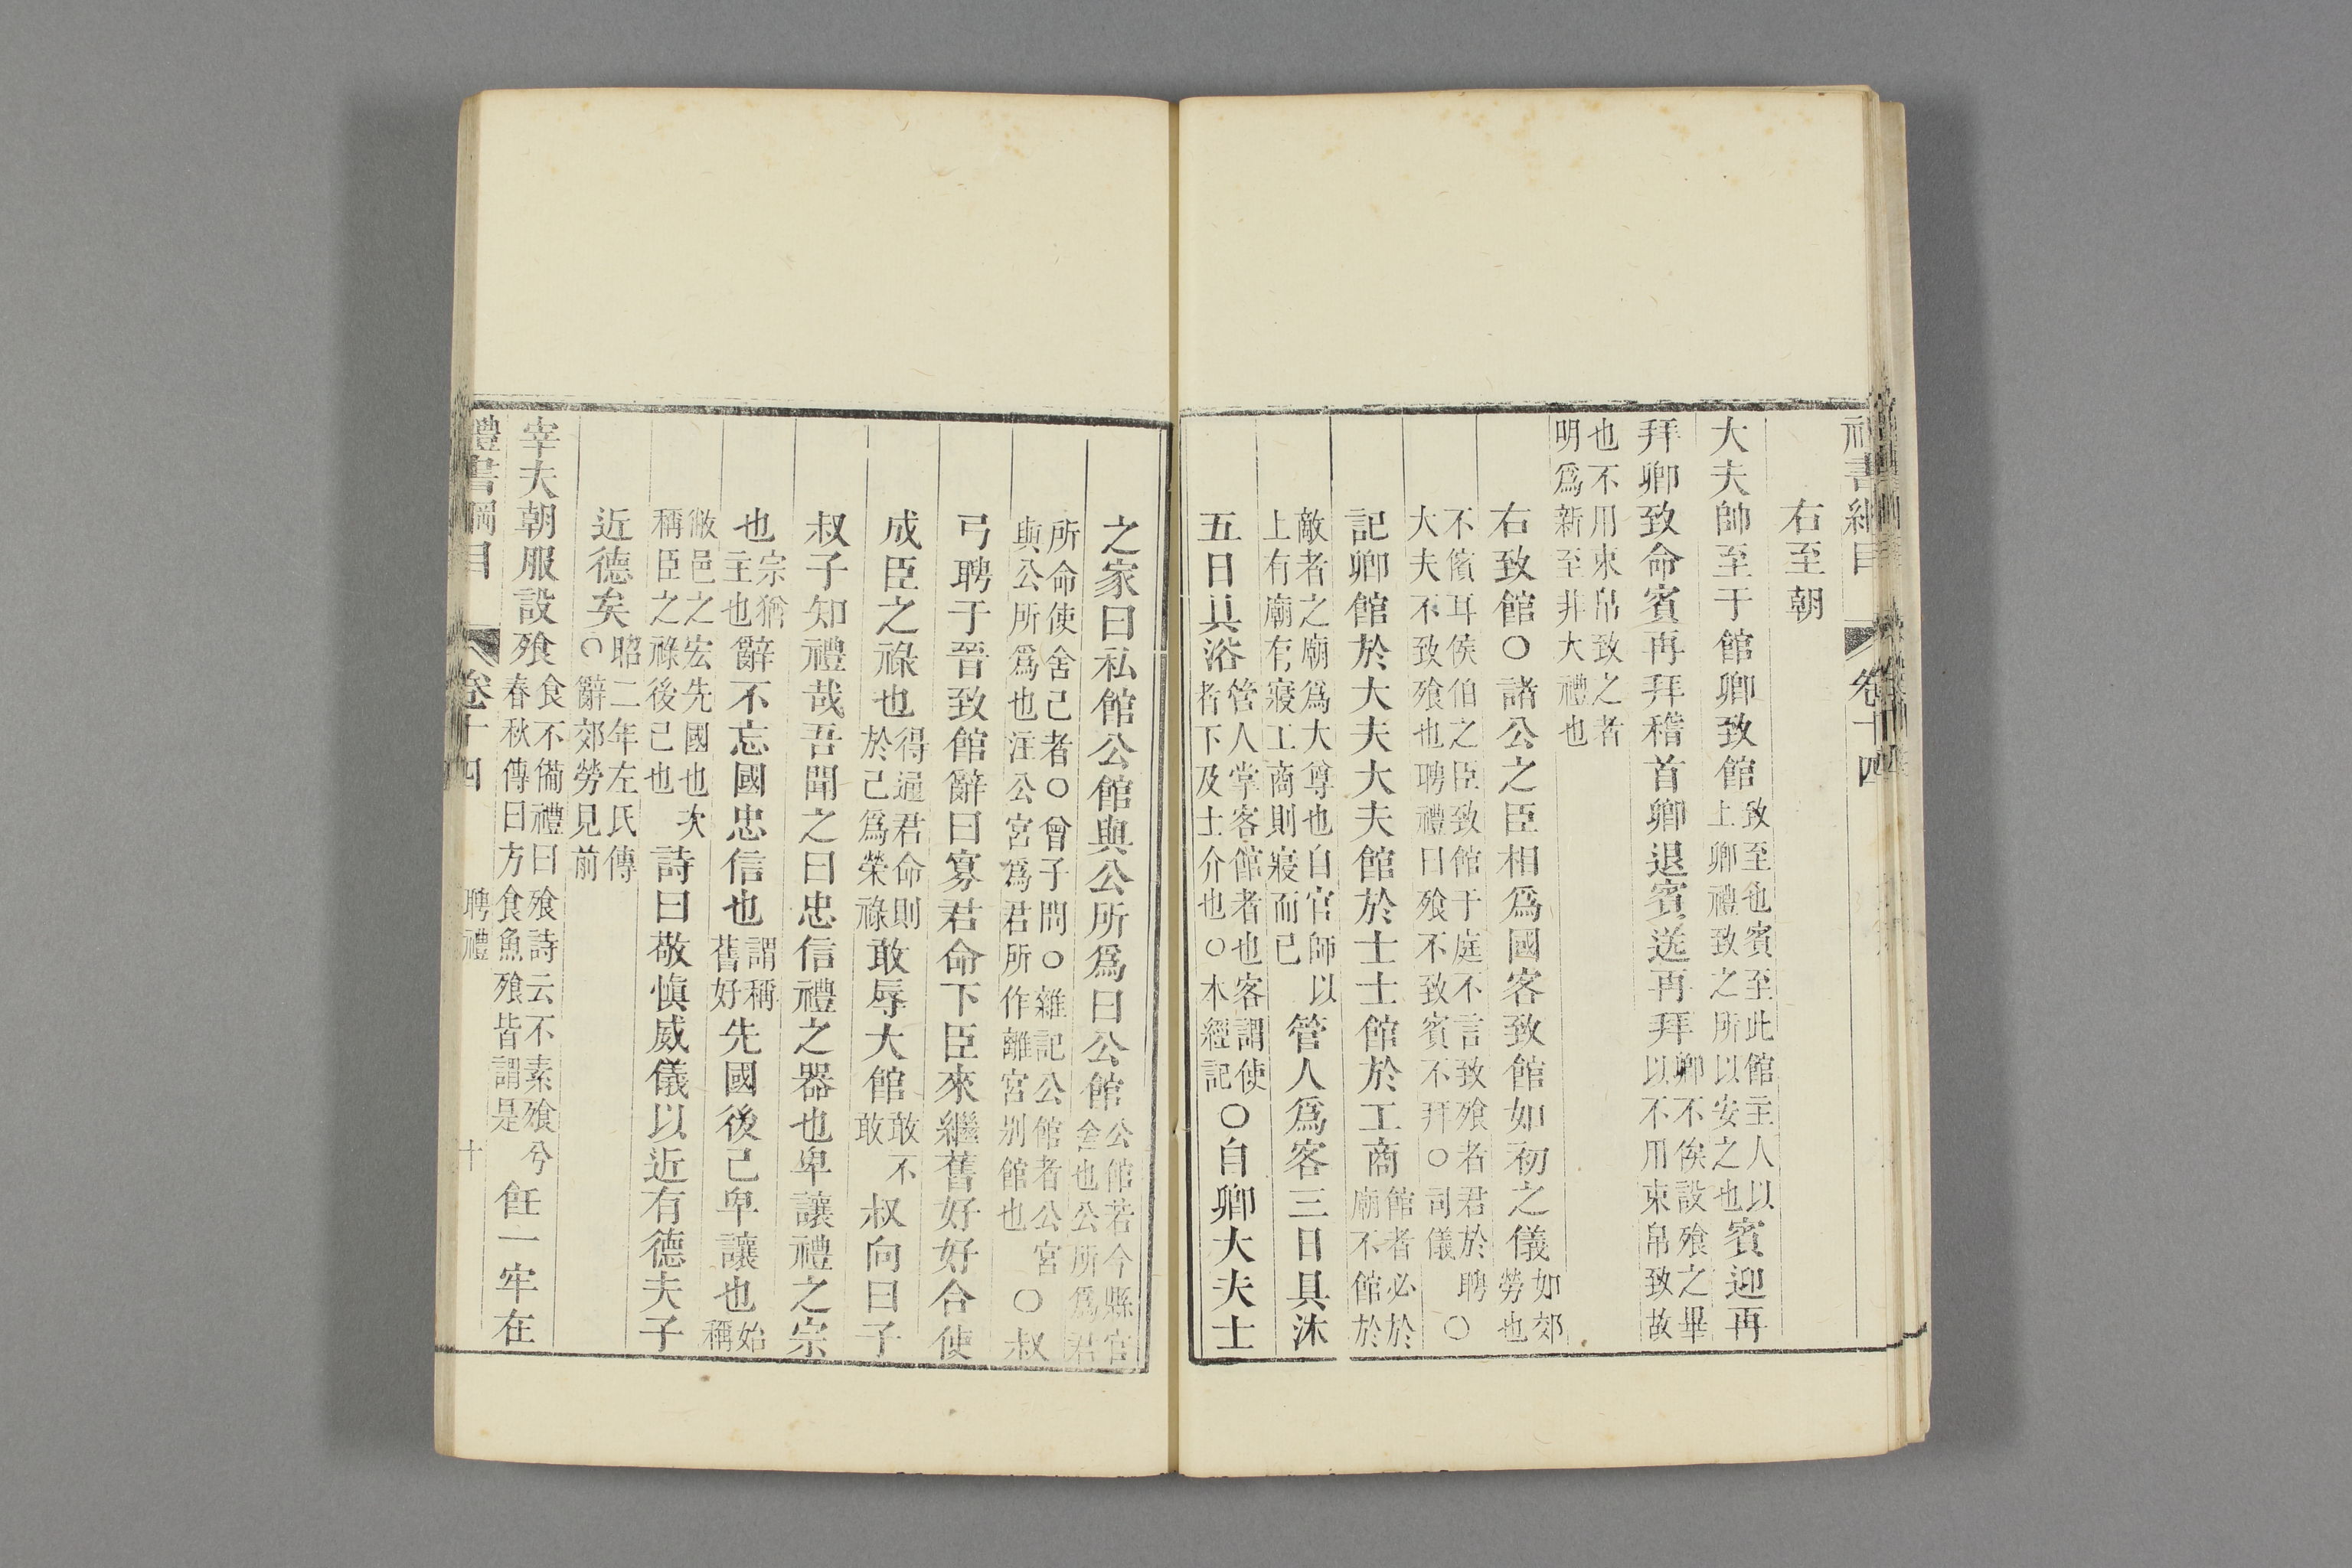 禮書綱目 卷十四
右至朝
大夫帥至于館卿致館致至也賓至此館主人以上卿禮致之所以安之也賓迎再
拜卿致命賓再拜稽首卿退賓送再拜卿不俟設飧之畢以不用束帛致故
也不用束帛致之者明爲新至非大禮也
右致館○諸公之臣相爲國客致館如初之儀如郊勞也
不儐耳侯伯之臣致館于庭不言致飧者君於聘大夫不致飧也聘禮曰飧不致賓不拜○司儀○
記卿館於大夫大夫館於士士館於工商館者必於廟不館於
敵者之廟爲大尊也自官師以上有廟有寢工商則寢而已管人爲客三日具沐
五日具浴管人掌客館者也客謂使者下及士介也○本經記○自卿大夫士
之家曰私館公館與公所爲曰公館公館若今縣官舍也公所爲君
所命使舍己者○曾子問○雜記公館者公宮與公所爲也注公宮爲君所作離宮别館也○叔
弓聘于晉致館辭曰寡君命下臣來繼舊好好合使
成臣之祿也得通君命則於己爲榮祿敢辱大館敢不敢叔向曰子
叔子知禮哉吾聞之曰忠信禮之器也卑讓禮之宗
也宗猶主也辭不忘國忠信也謂稱舊好先國後己卑讓也始稱
敝邑之宏先國也次稱臣之祿後己也詩曰敬愼威儀以近有德夫子
近德矣昭二年左氏傳○辭郊勞見前
宰夫朝服設飧食不備禮曰飧詩云不素飧兮春秋傳曰方食魚飧皆謂是飪一牢在
禮書綱目 卷十四 聘禮 十